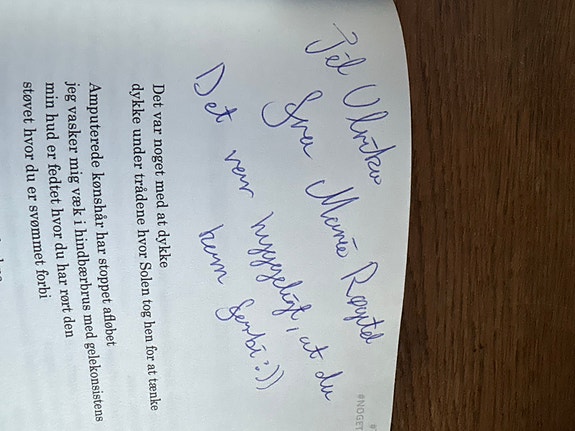 Til Ulrikw
Fra Marie Røgtd
Det var hyggeligt, at du
kom forbi :))
#NOGET
Det var noget med at dykke
dykke under trådene hvor Solen tog hen for at tænke
Amputerede kønshår har stoppet afløbet
jeg vasker mig væk i hindbærbrus med gelekonsistens
min hud er fedtet hvor du har rørt den
støvet hvor du er svømmet forbi